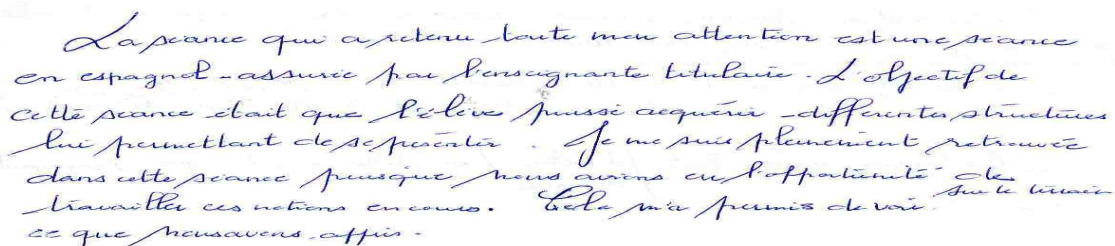 La séance qui a retenu toute mon attention est une séance
en espagnol - assurée par l'enseignante titulaire. L'objectif de
cette séance était que l'élève puisse acquérir - differentes structures
lui permettant de se présenter. Je me suis pleinement retrouvée
dans cette séance puisque nous avions eu l'opportunité de
travailler ces notions en cours. Cela m'a permis de voir sur le terrain
ce que nous avons appris.